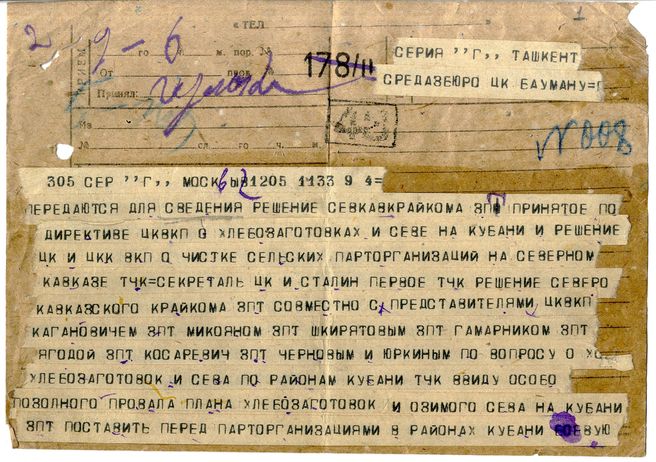 « ТЕЛ
2 9-6 го ч. м. пор. №
1
178/II
СЕРИЯ ''Г,, ТАШКЕНТ
От пров. №
СРЕДАЗБЮРО ЦК БАУМАНУ=
Принял:
Из
№ сл. го ч. м.
N 008
305 СЕР ''Г,, МОСКВЫ 62 1205 1133 9 4=
ПЕРЕДАЮТСЯ ДЛЯ СВЕДЕНИЯ РЕШЕНИЕ СЕВКАВКРАЙКОМА ЗПТ ПРИНЯТОЕ ПО
ДИРЕКТИВЕ ЦКВКП О ХЛЕБОЗАГОТОВКАХ И СЕВЕ НА КУБАНИ И РЕШЕНИЕ
ЦК И ЦКК ВКП О ЧИСТКЕ СЕЛЬСКИХ ПАРТОРГАНИЗАЦИЙ НА СЕВЕРНОМ
КАВКАЗЕ ТЧК=СЕКРЕТАЛЬ ЦК И СТАЛИН ПЕРВОЕ ТЧК РЕШЕНИЕ СЕВЕРО
КАВКАЗСКОГО КРАЙКОМА ЗПТ СОВМЕСТНО С ПРЕДСТАВИТЕЛЯМИ ЦКВКП
КАГАНОВИЧЕМ ЗПТ МИКОЯНОМ ЗПТ ШКИРЯТОВЫМ ЗПТ ГАМАРНИКОМ ЗПТ
ЯГОДОЙ ЗПТ КОСАРЕВИЧ ЗПТ ЧЕРНОВЫМ И ЮРКИНЫМ ПО ВОПРОСУ О ХОДЕ
ХЛЕБОЗАГОТОВОК И СЕВА ПО РАЙОНАМ КУБАНИ ТЧК ВВИДУ ОСОБО
ПОЗОЛНОГО ПРОВАЛА ПЛАНА ХЛЕБОЗАГОТОВОК И ОЗИМОГО СЕВА НА КУБАНИ
ЗПТ ПОСТАВИТЬ ПЕРЕД ПАРТОРГАНИЗАЦИЯМИ В РАЙОНАХ КУБАНИ БОЕВУЮ